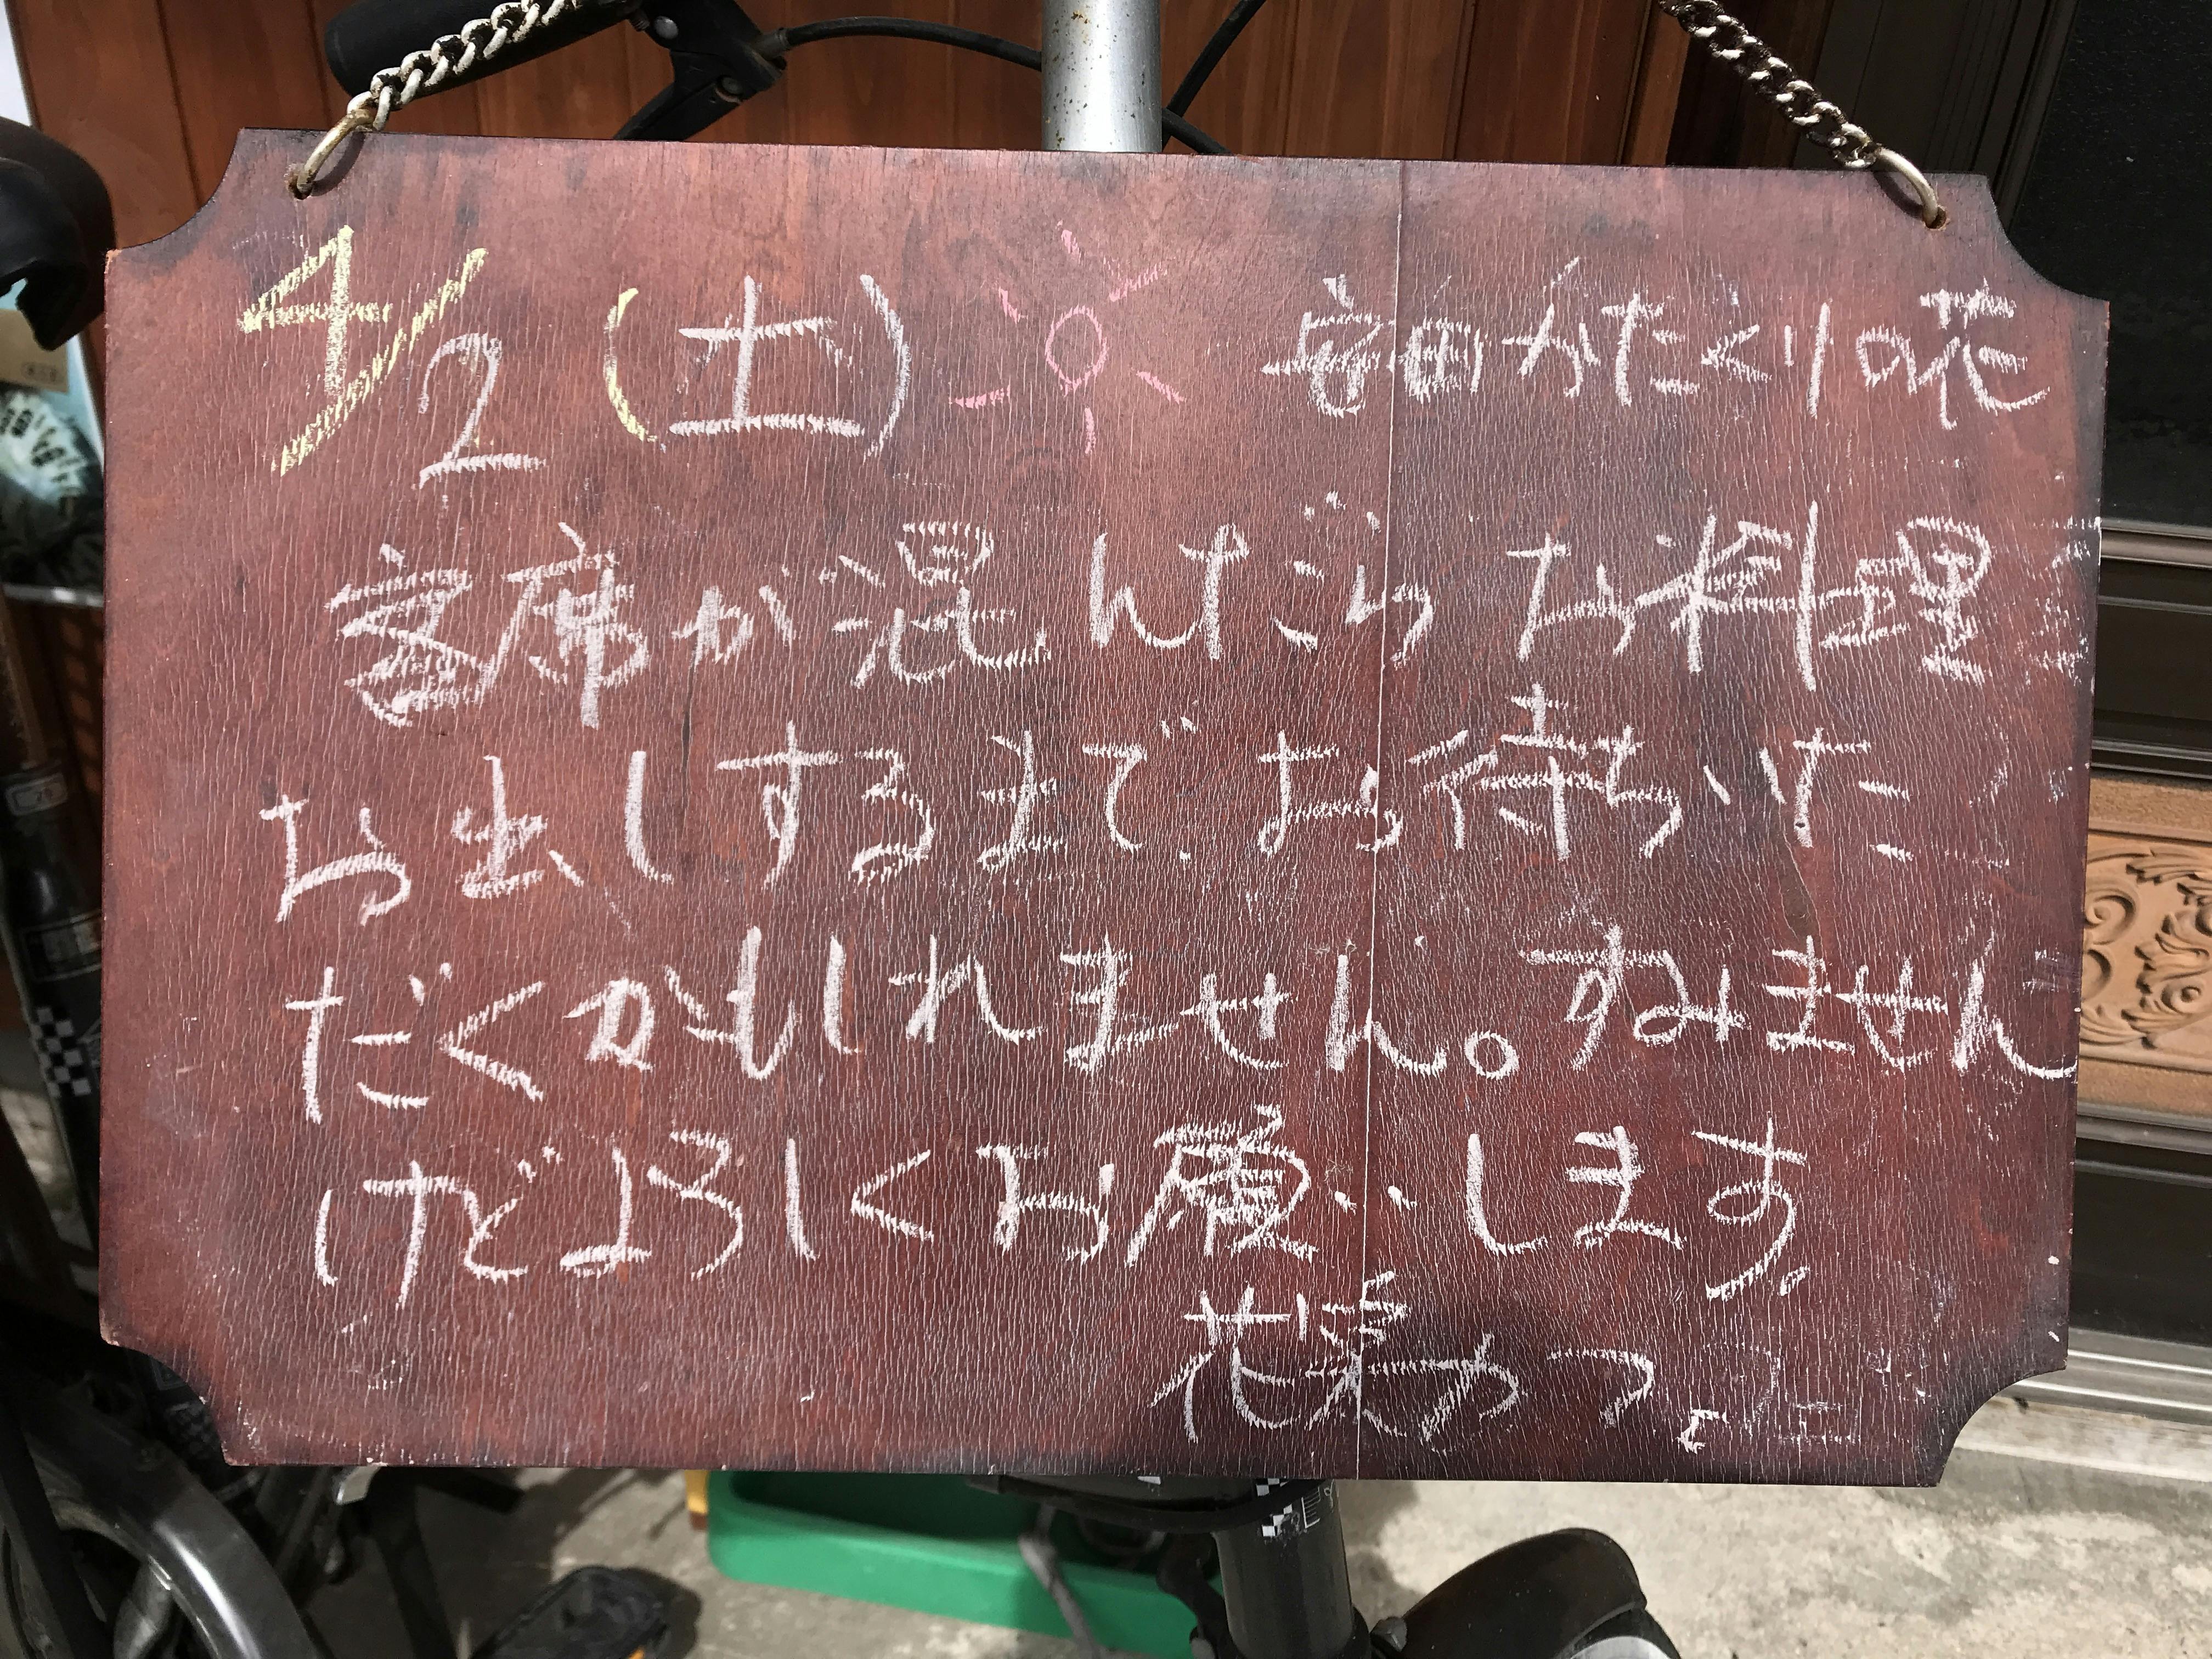 4/2(土) 安田かたくりの花
客席が混んだら お料理
お出しするまで お待ちいた
だくかもしれません。すみません
けどよろしくお願いします。